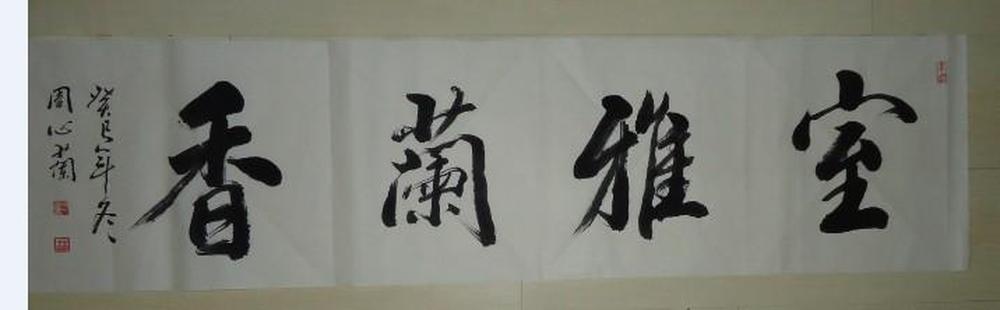 室雅蘭香
癸巳年冬
周心蘭